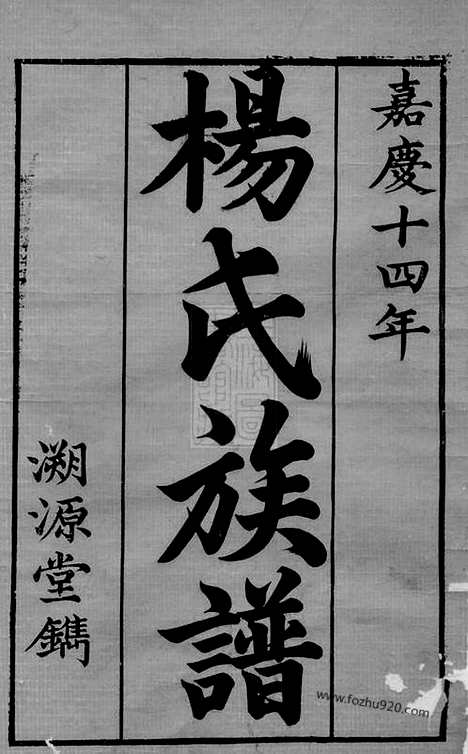 嘉慶十四年
楊氏族譜
溯源堂鐫
www.fozhu920.com